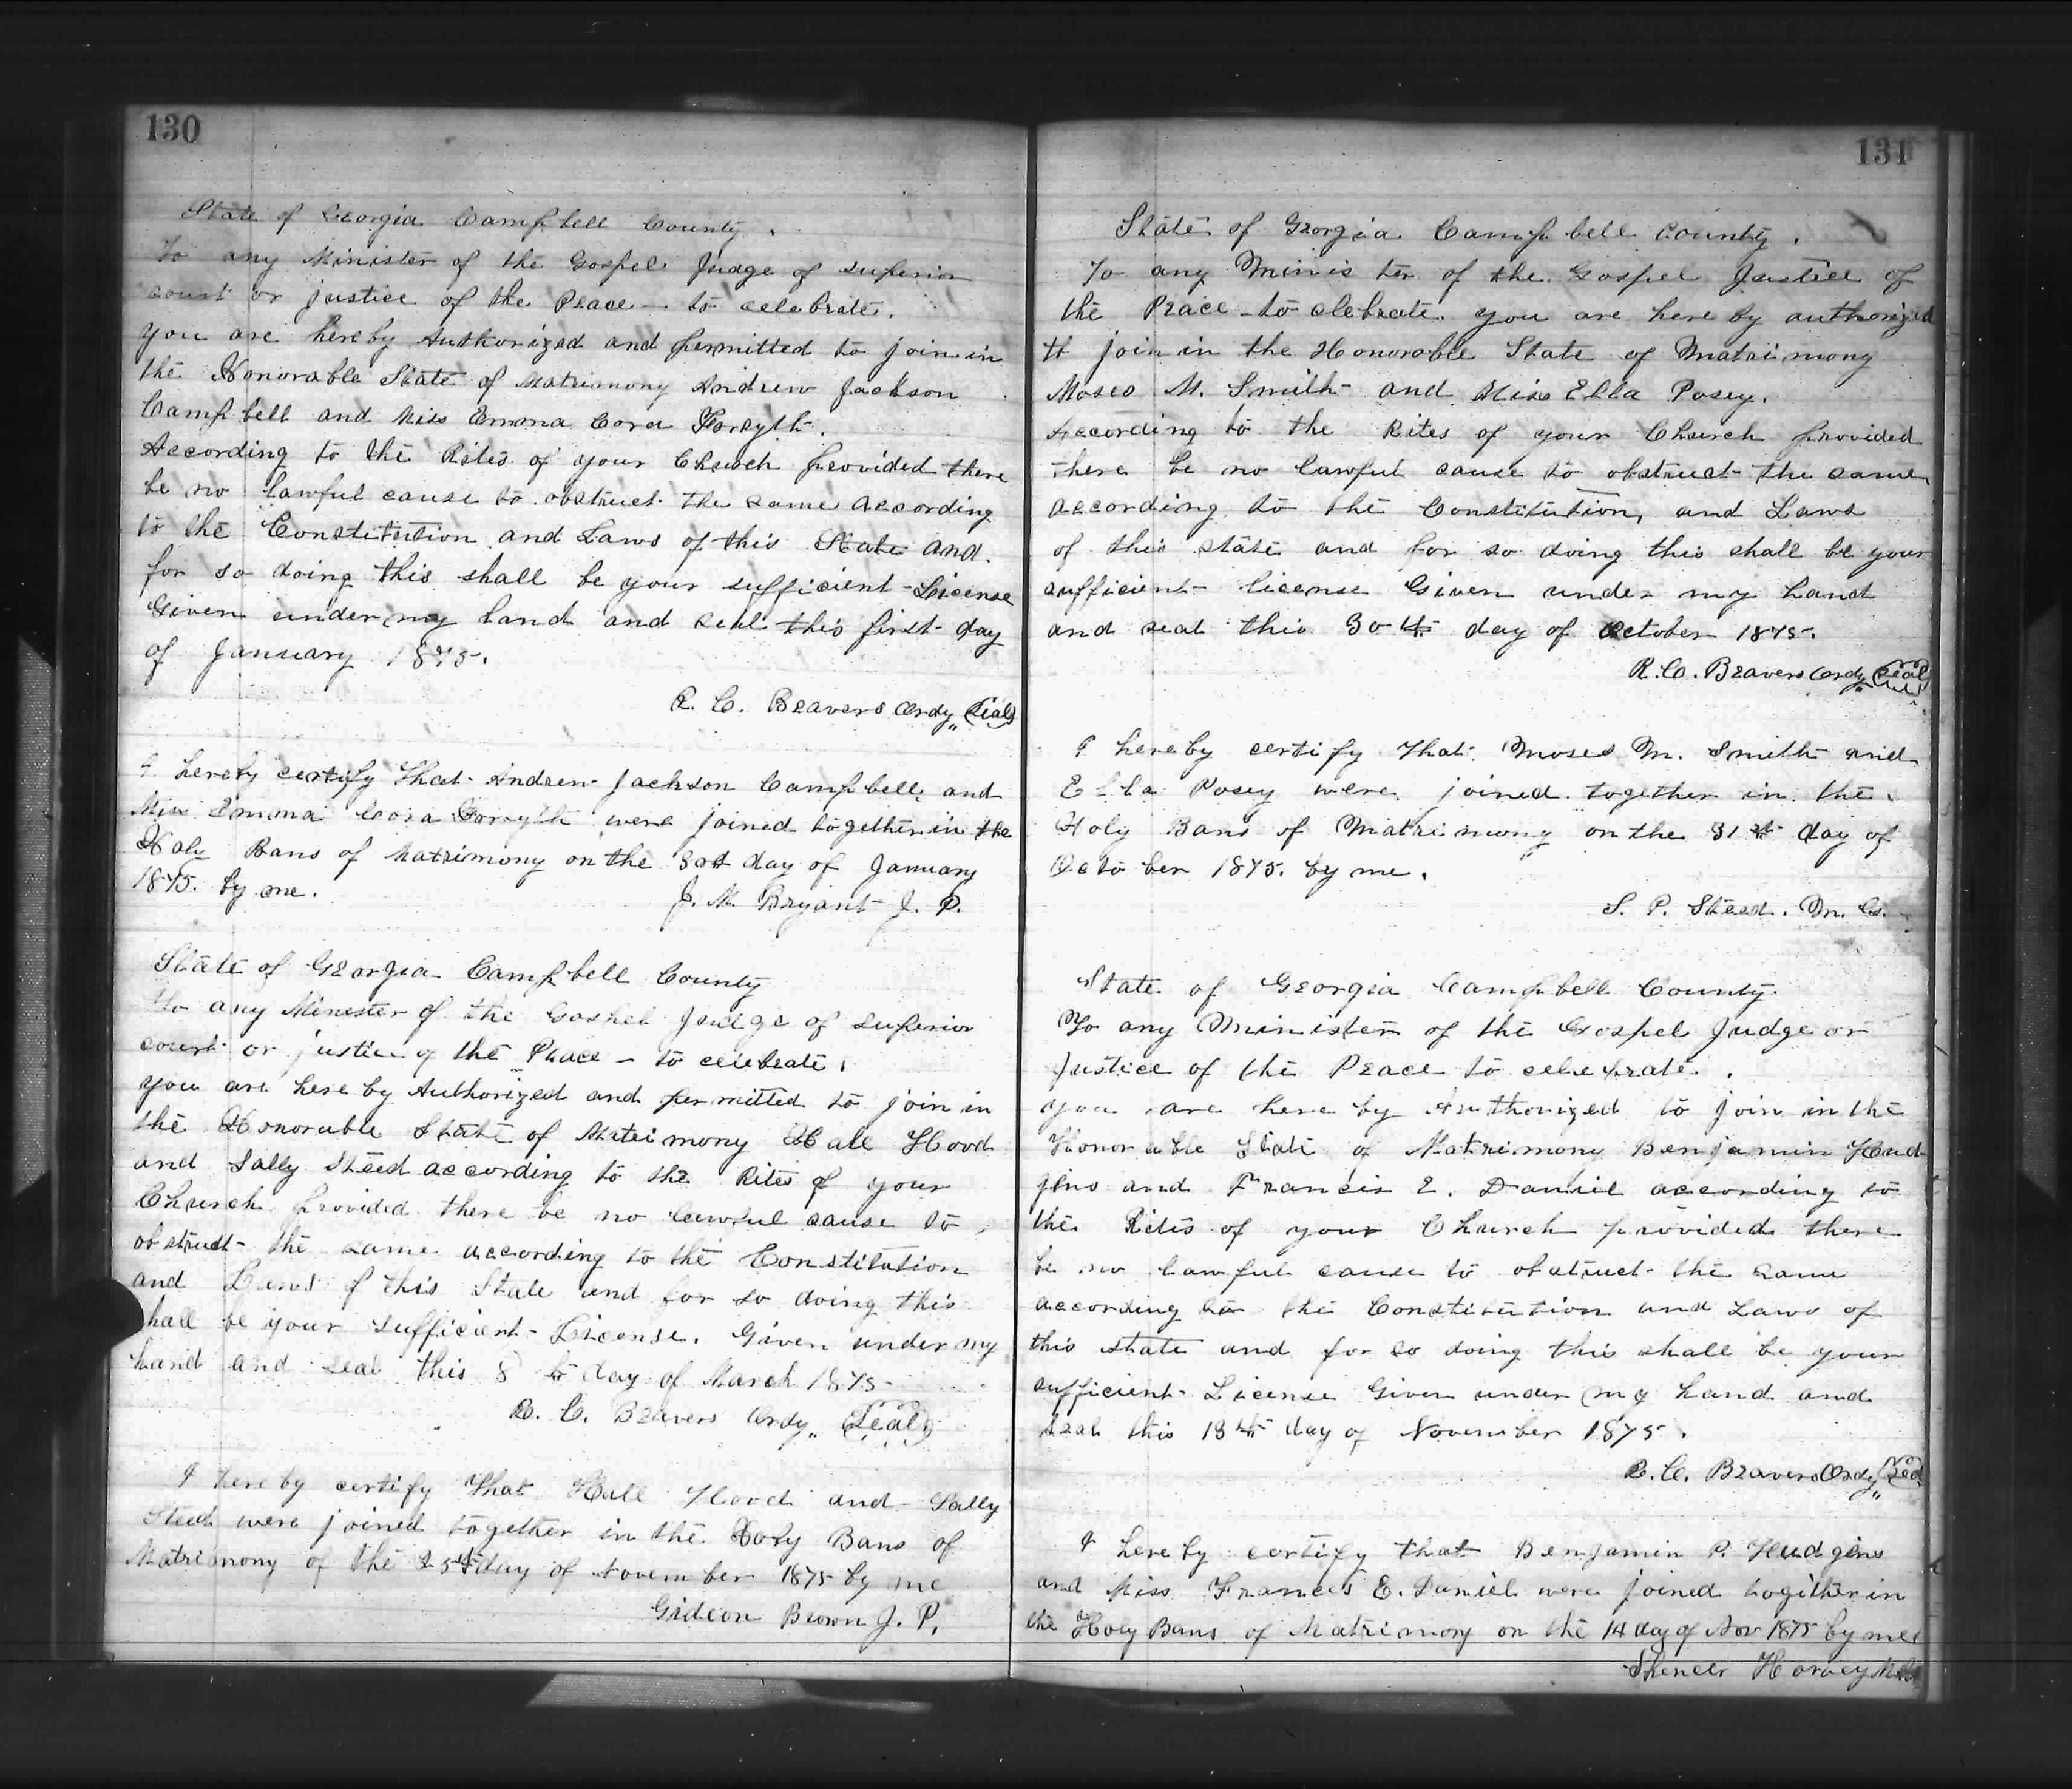 130
State of Georgia Campbell County.
To any Minister of the Gospel Judge of superior
court or justice of the Peace - to celebrate.
you are hereby Authorized and permitted to join in
the Honorable State of Matrimony Andrew Jackson
Campbell and Miss Emma Cora Forsyth.
According to the Rites of your Church provided there
be no lawful cause to obstruct the same according
to the Constitution and Laws of this State and
for so doing this shall be your sufficient License
Given under my hand and seal this first day
of January 1875.
R. C. Beavers Ordy (Seal)
I hereby certify that Andrew Jackson Campbell and
Miss Emma Cora Forsyth were joined together in the
Holy Bans of Matrimony on the 30th day of January
1875. by me.
J. M. Bryant J. P.
State of Georgia Campbell County
To any Minester of the Gospel Judge of superior
court or justice of the Peace - to celebrate.
you are here by Authorized and permitted to join in
the Honorable State of Matrimony Hall Hood
and Sally Steed according to the Rites of your
Church provided there be no lawful cause to
obstruct the same according to the Constitution
and Laws of this State and for so doing this
shall be your sufficient License. Given under my
hand and seal this 8th day of March 1875
R. C. Beavers Ordy (Seal)
I hereby certify that Hall Hood and Sally
Steed were joined together in the Holy Bans of
Matrimony of the 25th day of November 1875 by me
Gideon Brown J. P.
131
State of Georgia Campbell County.
To any Minister of the Gospel Justice of
the Peace - to celebrate. you are here by authorized
to join in the Honorable State of Matrimony
Moses M. Smith and Miss Ella Posey.
According to the Rites of your Church provided
there be no lawful cause to obstruct the same
according to the Constitution, and Laws
of this state and for so doing this shall be your
sufficient license Given under my hand
and seal this 30th day of October 1875.
R. C. Beavers Ordy (Seal)
I hereby certify that Moses M. Smith and
Ella Posey were joined together in the
Holy Bans of Matrimony on the 31st day of
October 1875. by me.
S. P. Steed. M. G.
State of Georgia Campbell County.
To any Minister of the Gospel Judge or
Justice of the Peace to celebrate.
you are here by Authorized to join in the
Honorable State of Matrimony Benjamin Hud
gins and Francis E. Daniel according to
the Rites of your Church provided there
be no lawful cause to obstruct the same
according to the Constitution and Laws of
this state and for so doing this shall be your
sufficient License Given under my hand and
seal this 13th day of November 1875.
R. C. Beavers Ordy (Seal)
I hereby certify that Benjamin P. Hudgins
and Miss Frances E. Daniel were joined together in
the Holy Bans of Matrimony on the 14 day of Nov 1875 by me
Spencer Harvey